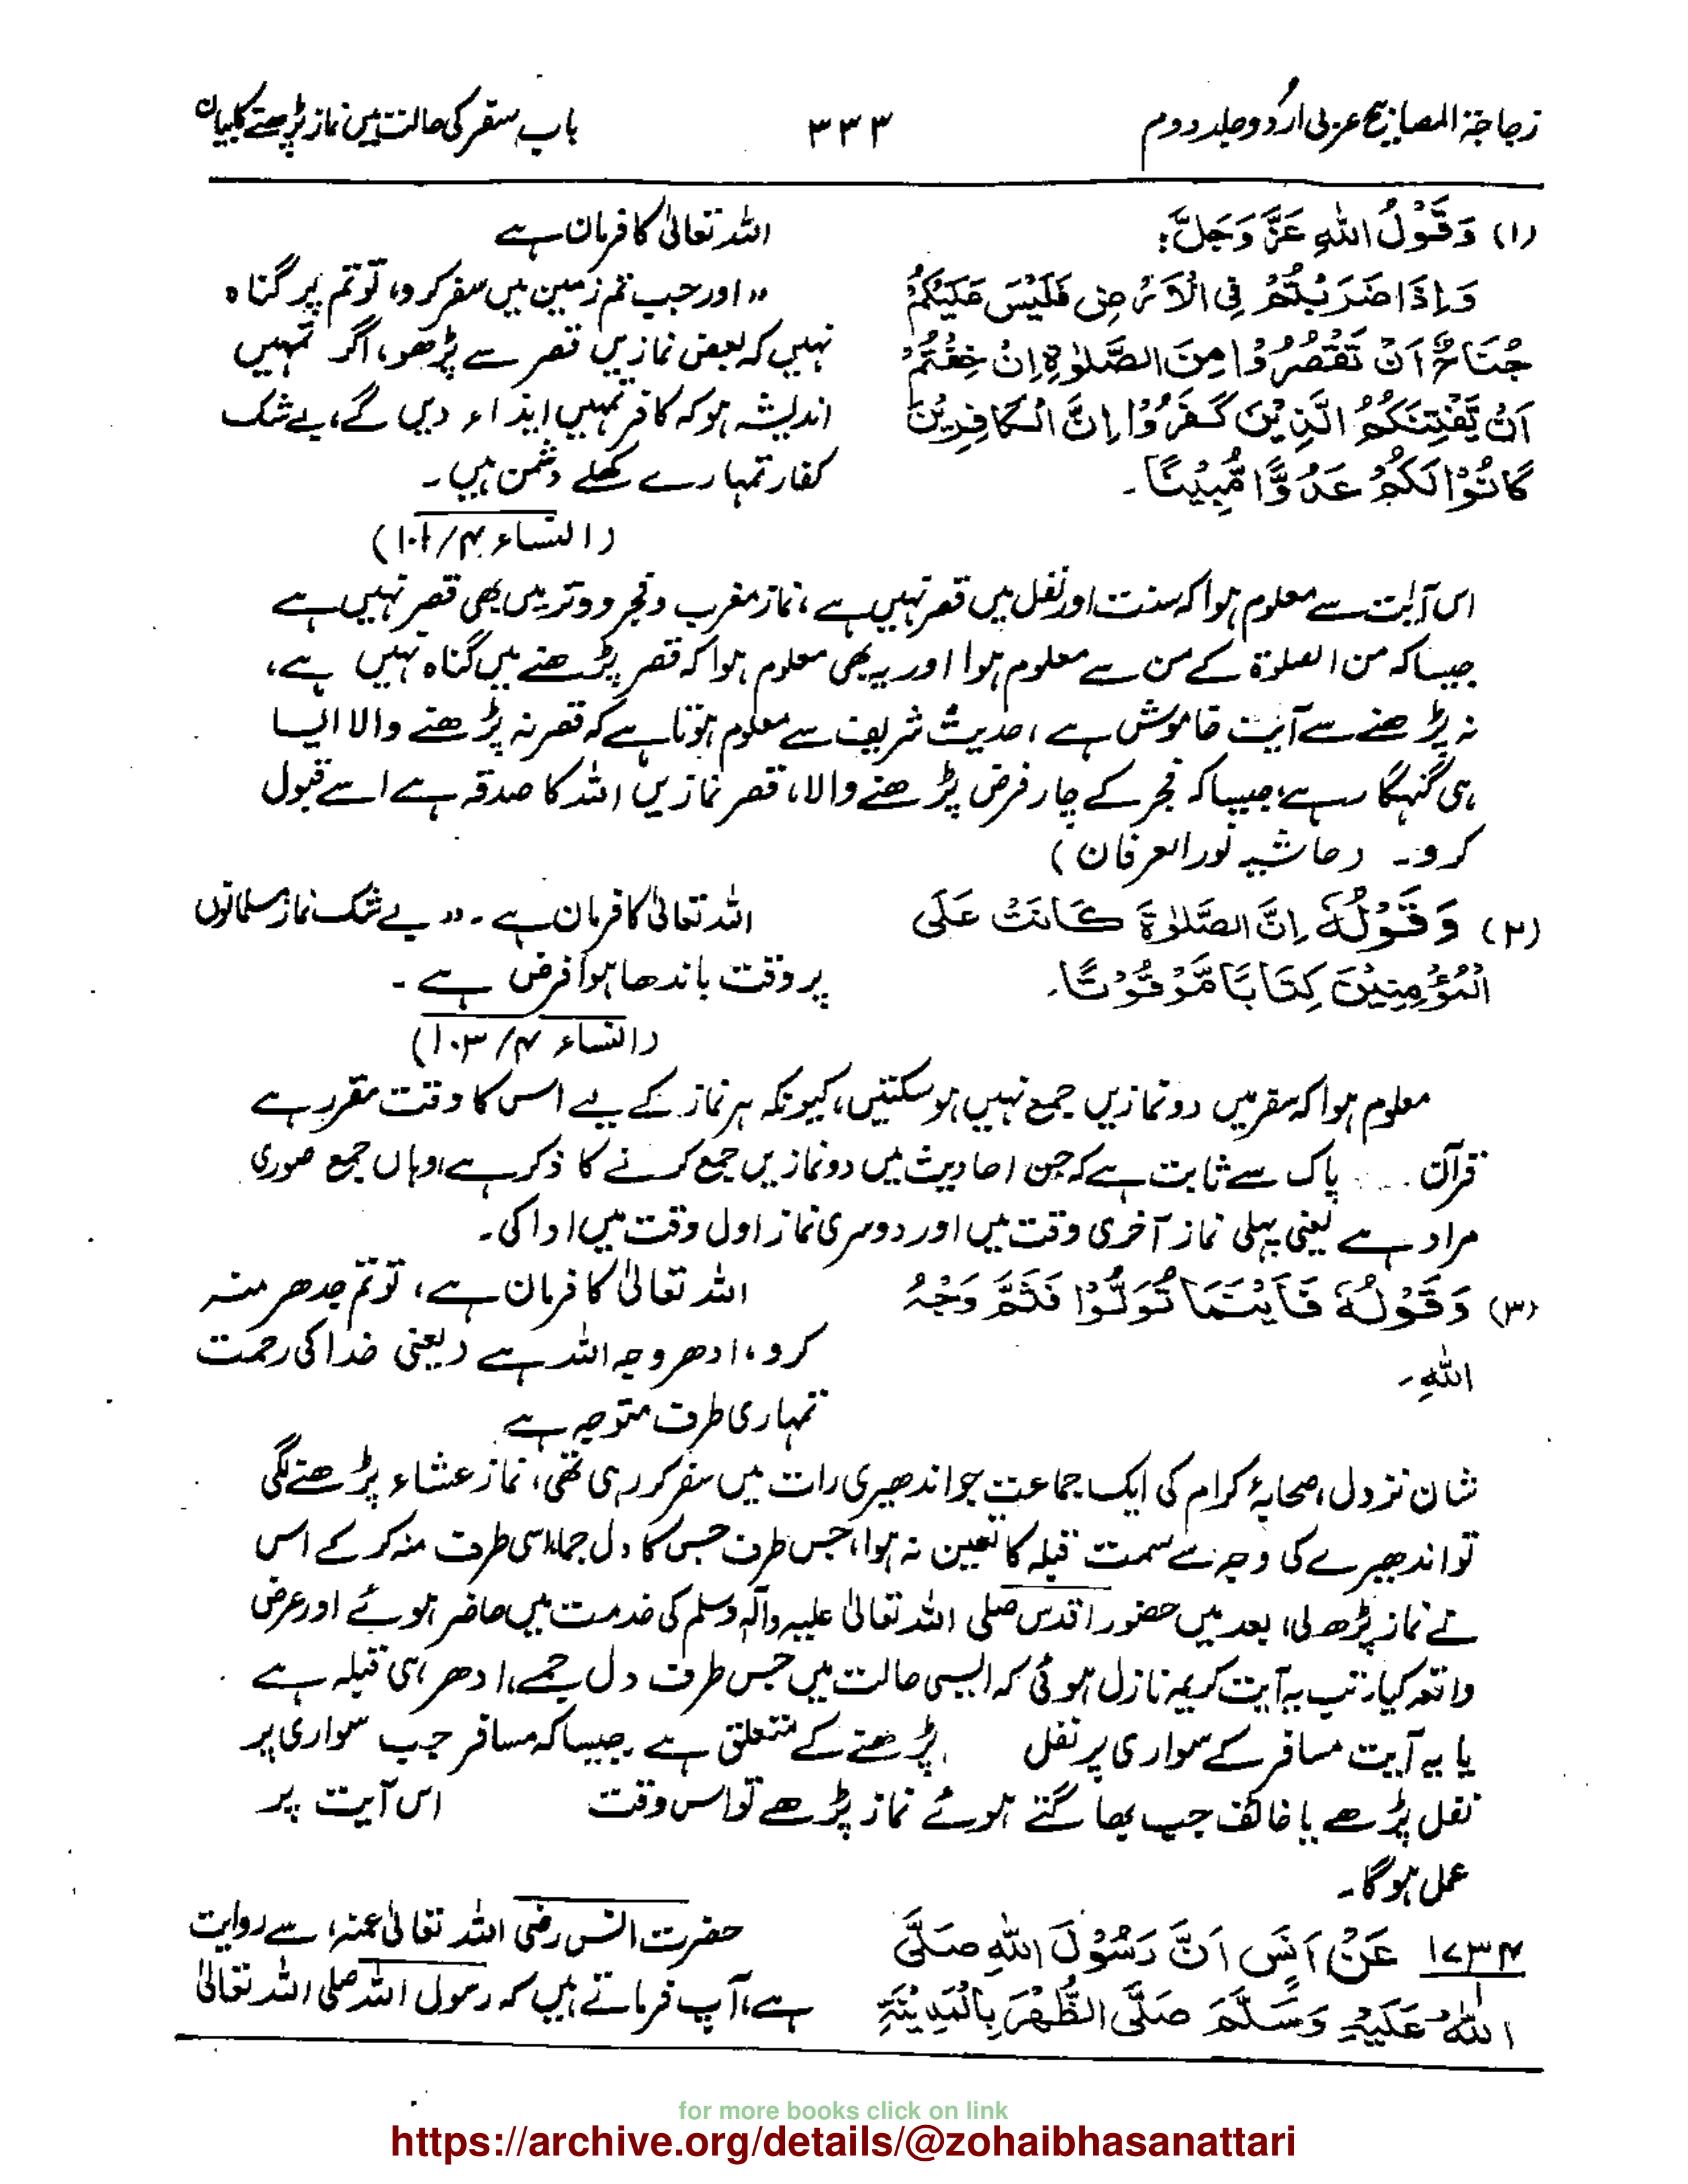 زجاجۃ المصابیح عربی اردو جلد دوم
۳۳۳
باب سفر کی حالت میں نماز پڑھنے کا بیان
(۱) وَقَوْلُ اللهِ عَزَّ وَجَلَّ:
وَاِذَا ضَرَبْتُمْ فِی الْاَرْضِ فَلَیْسَ عَلَیْکُمْ
جُنَاحٌ اَنْ تَقْصُرُوْا مِنَ الصَّلٰوۃِ اِنْ خِفْتُمْ
اَنْ یَّفْتِنَکُمُ الَّذِیْنَ کَفَرُوْا اِنَّ الْکَافِرِیْنَ
کَانُوْا لَکُمْ عَدُوًّا مُّبِیْنًا۔
اللہ تعالیٰ کا فرمان ہے
"اور جب تم زمین میں سفر کرو، تو تم پر گناہ
نہیں کہ بعض نمازیں قصر سے پڑھو، اگر تمہیں
اندیشہ ہو کہ کافر تمہیں ایذاء دیں گے، بے شک
کفار تمہارے کھلے دشمن ہیں۔
(النساء ۴/۱۰۱)
اس آیت سے معلوم ہوا کہ سنت اور نفل میں قصر نہیں ہے، نماز مغرب و فجر و وتر میں بھی قصر نہیں ہے
جیسا کہ من الصلوۃ کے من سے معلوم ہوا اور یہ بھی معلوم ہوا کہ قصر پڑھنے میں گناہ نہیں ہے،
نہ پڑھنے سے آیت خاموش ہے، حدیث شریف سے معلوم ہوتا ہے کہ قصر نہ پڑھنے والا ایسا
ہی گنہگار ہے، جیسا کہ فجر کے چار فرض پڑھنے والا، قصر نمازیں اللہ کا صدقہ ہے اسے قبول
کرو۔ (حاشیہ نور العرفان)
(۲) وَقَوْلُہٗ اِنَّ الصَّلٰوۃَ کَانَتْ عَلَی
الْمُؤْمِنِیْنَ کِتَابًا مَّوْقُوْتًا۔
اللہ تعالیٰ کا فرمان ہے۔ "بے شک نماز مسلمانوں
پر وقت باندھا ہوا فرض ہے۔
(النساء ۴/۱۰۳)
معلوم ہوا کہ سفر میں دو نمازیں جمع نہیں ہو سکتیں، کیونکہ ہر نماز کے لیے اس کا وقت مقرر ہے
قرآن پاک سے ثابت ہے کہ جن احادیث میں دو نمازیں جمع کرنے کا ذکر ہے، وہاں جمع صوری
مراد ہے یعنی پہلی نماز آخری وقت میں اور دوسری نماز اول وقت میں ادا کی۔
(۳) وَقَوْلُہٗ فَاَیْنَمَا تُوَلُّوْا فَثَمَّ وَجْہُ
اللّٰہِ۔
اللہ تعالیٰ کا فرمان ہے، تو تم جدھر منہ
کرو، ادھر وجہ اللہ ہے (یعنی خدا کی رحمت
تمہاری طرف متوجہ ہے
شان نزول، صحابۂ کرام کی ایک جماعت جو اندھیری رات میں سفر کر رہی تھی، نماز عشاء پڑھنے لگی
تو اندھیرے کی وجہ سے سمت قبلہ کا تعین نہ ہوا، جس طرف جس کا دل جما، اسی طرف منہ کر کے اس
نے نماز پڑھ لی، بعد میں حضور اقدس صلی اللہ تعالیٰ علیہ وآلہ وسلم کی خدمت میں حاضر ہوئے اور عرض
واقعہ کیا، تب یہ آیت کریمہ نازل ہوئی کہ ایسی حالت میں جس طرف دل جمے، ادھر ہی قبلہ ہے
یا یہ آیت مسافر کے سواری پر نفل پڑھنے کے متعلق ہے جیسا کہ مسافر جب سواری پر
نفل پڑھے یا خائف جب بھاگتے ہوئے نماز پڑھے تو اس وقت اس آیت پر
عمل ہوگا۔
۱۷۳۴ عَنْ اَنَسٍ اَنَّ رَسُوْلَ اللّٰہِ صَلَّی
اللّٰہُ عَلَیْہِ وَسَلَّمَ صَلَّی الظُّھْرَ بِالْمَدِیْنَۃِ
حضرت انس رضی اللہ تعالیٰ عنہ، سے روایت
ہے، آپ فرماتے ہیں کہ رسول اللہ صلی اللہ تعالیٰ
for more books click on link
https://archive.org/details/@zohaibhasanattari